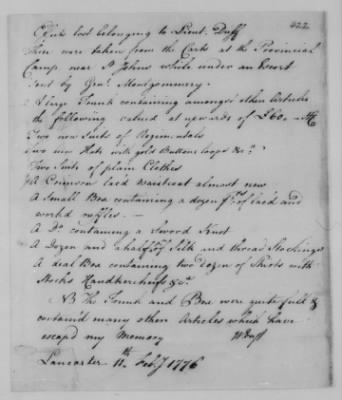 422
Effects lost belonging to Lieut. Duff
These were taken from the Carts at the Provincial
Camp near St Johns while under an Escort
sent by Genl. Montgommery.
A large Trunk containing amongst other Articles
the following valued at upwards of £60.
Two new Suits of Regimentals
Two new Hats with gold Buttons loops &c.
Two Suits of plain Clothes
A laced waistcoat almost new
A Small Box containing a dozen prs of laced and
work'd ruffles. —
A Do. containing a Sword
A Dozen and a half prs of Silk and thread Stockings
A Seal Box containing two dozen of Shirts with
Stocks Handkerchiefs &c.
NB The Trunk and Box were quite full &
contain'd many other Articles which have
escap'd my Memory
W Duff
Lancaster 11th Feby 1776